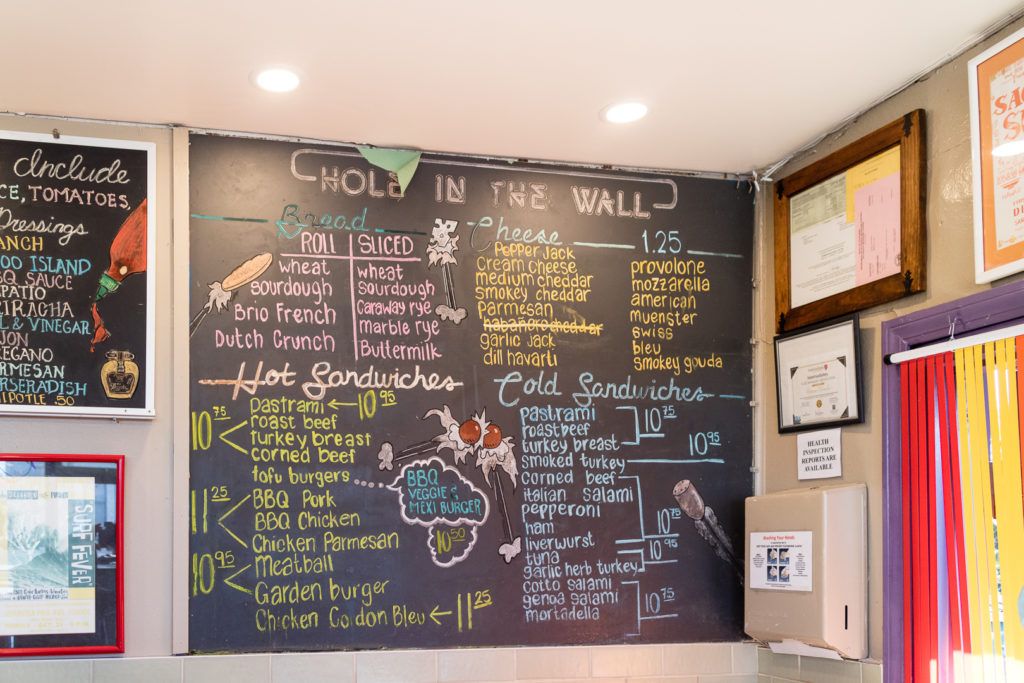 Include
TOMATOES,
Dressings
ISLAND
SAUCE
& VINEGAR
.50
HOLE IN THE WALL
Bread
ROLL SLICED
wheat wheat
sourdough sourdough
Brio French Caraway rye
Dutch Crunch marble rye
Buttermilk
Cheese 1.25
Pepper Jack
Cream cheese
medium cheddar
smokey cheddar
Parmesan
habañero cheddar
garlic Jack
dill havarti
provolone
mozzarella
american
muenster
swiss
bleu
smokey gouda
Hot Sandwiches
Pastrami 10.95
10.75
roast beef
turkey breast
corned beef
tofu burgers
BBQ
VEGGIE &
MEXI BURGER
10.50
11.25
BBQ Pork
BBQ Chicken
Chicken Parmesan
10.95
Meatball
Garden burger
Chicken Cordon Bleu 11.25
Cold Sandwiches
pastrami
roast beef 10.75
turkey breast
smoked turkey 10.95
corned beef
italian salami
pepperoni
ham 10.75
liverwurst
tuna 10.95
garlic herb turkey
cotto salami
genoa salami 10.75
mortadella
HEALTH
INSPECTION
REPORTS ARE
AVAILABLE
SURF FEVER